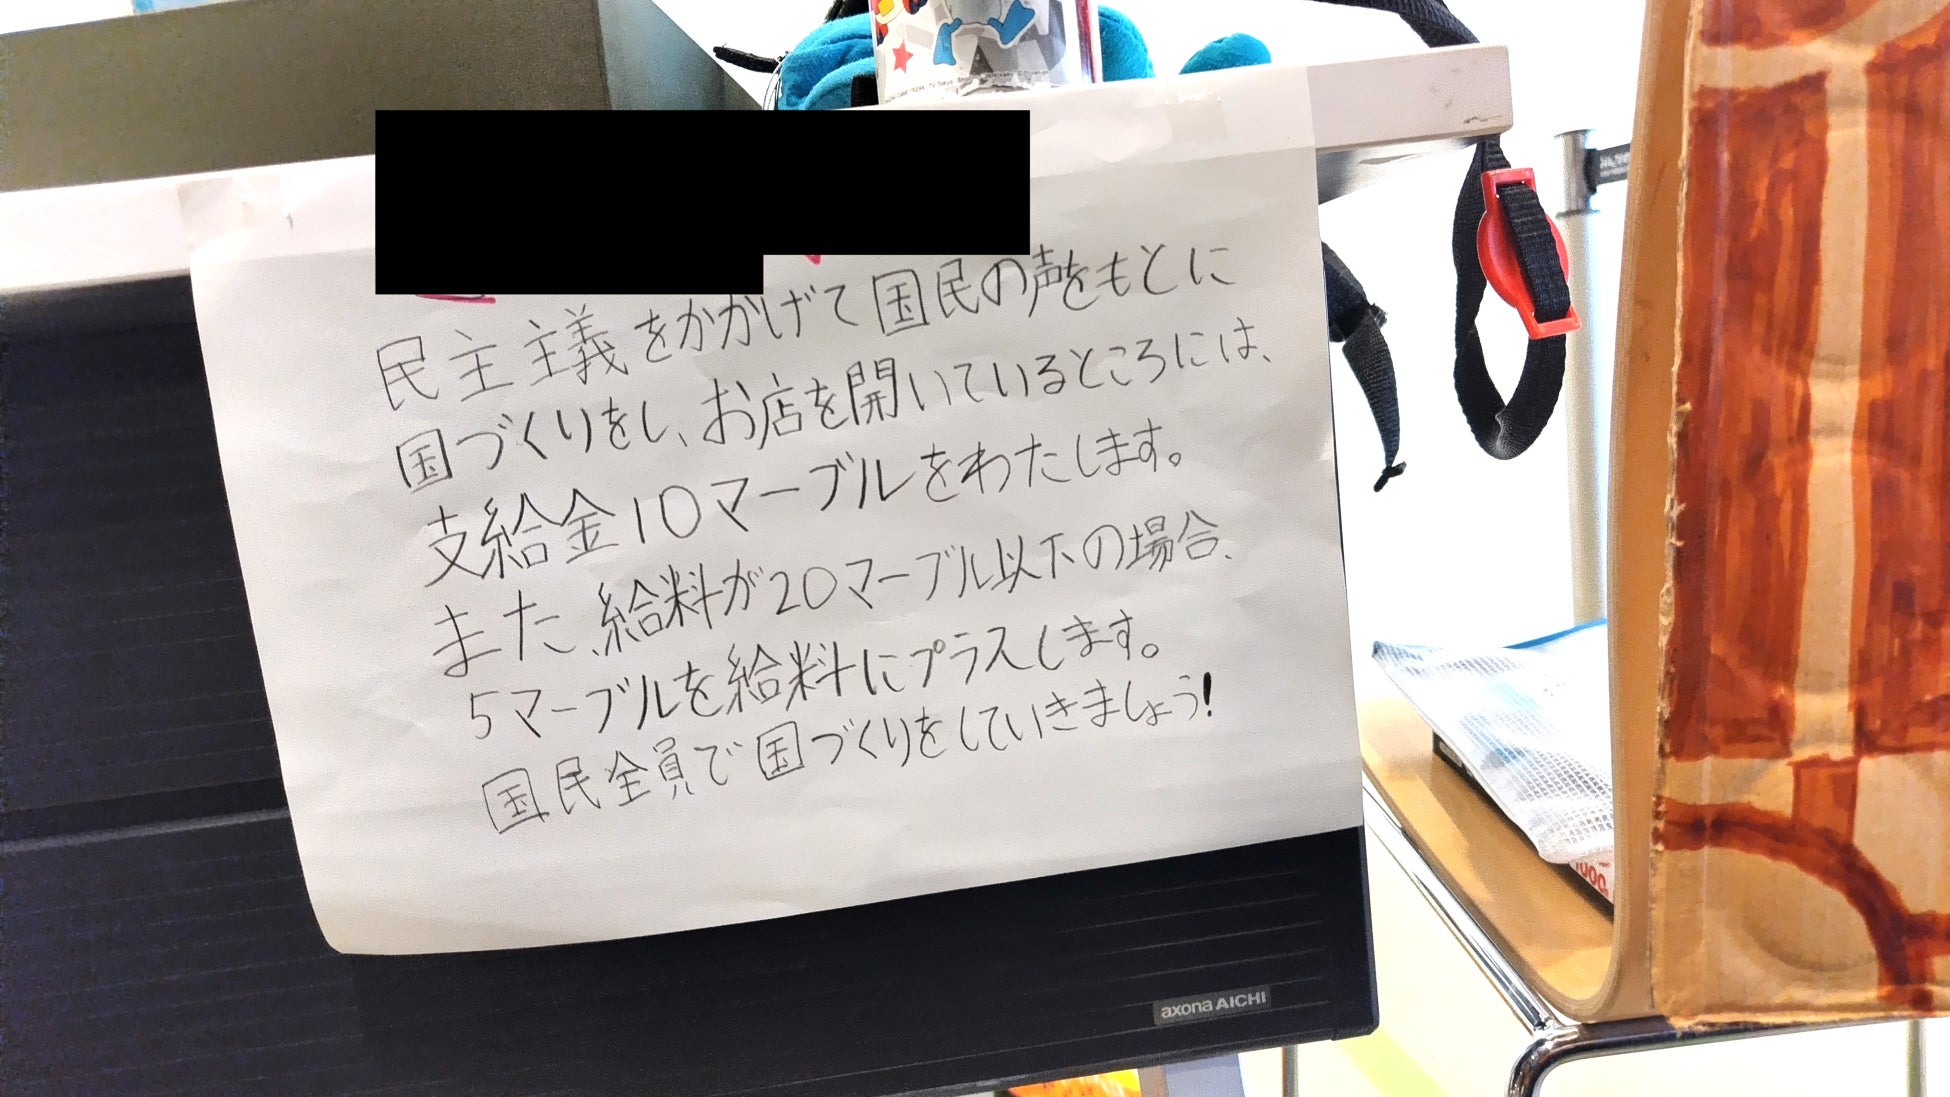 民主主義をかかげて国民の声をもとに
国づくりをし、お店を開いているところには、
支給金10マーブルをわたします。
また、給料が20マーブル以下の場合、
5マーブルを給料にプラスします。
国民全員で国づくりをしていきましょう!
axona AICHI